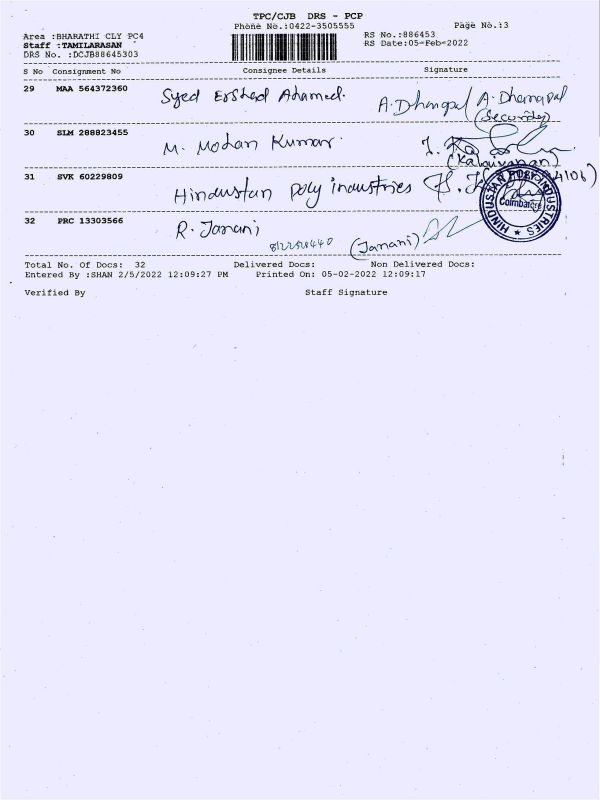 TPC/CJB DRS - PCP
Phone No.:0422-3505555 Page No.:3
Area :BHARATHI CLY PC4 RS No.:886453
Staff :TAMILARASAN RS Date:05-Feb-2022
DRS No. :DCJB88645303
S No Consignment No Consignee Details Signature
29 MAA 564372360 Syed Ershad Ahamed. A. Dhanapal / A. Dhanapal
(Security)
30 SLM 288823455 M. Mohan Kumar.
(Kalaivanan)
31 SVK 60229809 Hindustan Poly industries
HINDUSTAN POLY INDUSTRIES
Coimbatore
32 PRC 13303566 R. Janani
(Janani)
Total No. Of Docs: 32 Delivered Docs: Non Delivered Docs:
Entered By :SHAN 2/5/2022 12:09:27 PM Printed On: 05-02-2022 12:09:17
Verified By Staff Signature